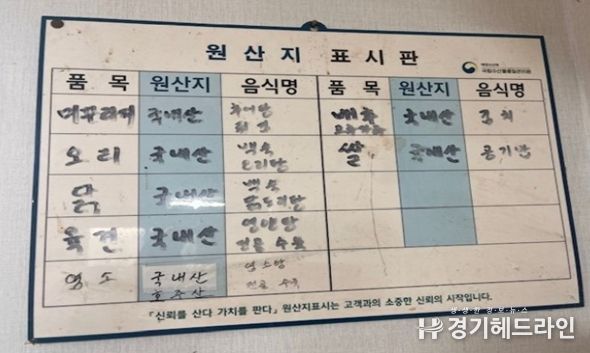 원산지 표시판
국립수산물품질관리원
품 목 원산지 음식명 품 목 원산지 음식명
미꾸라지 국내산 추어탕 배추 국내산 김치
고추가루
오리 국내산 백숙 쌀 국내산 공기밥
오리탕
닭 국내산 백숙
닭도리탕
육견 국내산 영양탕
전골 수육
염소 국내산 염소탕
호주산 전골 수육
『신뢰를 산다 가치를 판다』 원산지표시는 고객과의 소중한 신뢰의 시작입니다.
경기헤드라인